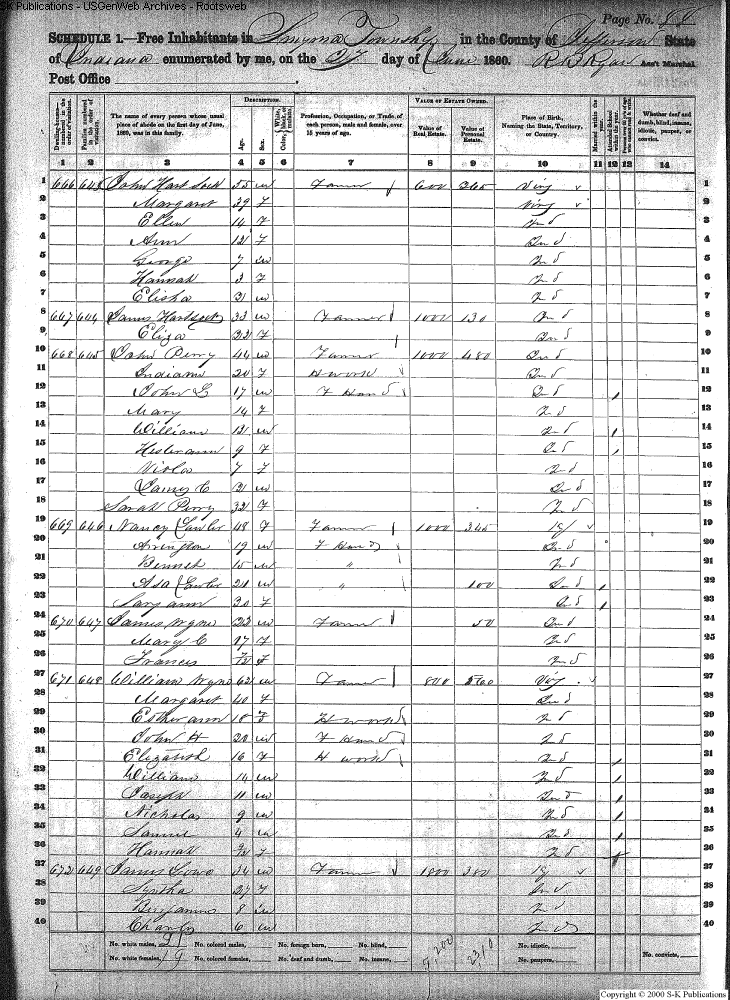 S-K Publications - USGenWeb Archives - Rootsweb
Page No. 88
SCHEDULE 1.—Free Inhabitants in Smyrna Township in the County of Jefferson State
of Indiana enumerated by me, on the 27 day of June 1860. R B Ryan Ass't Marshal
Post Office
DESCRIPTION. VALUE OF ESTATE OWNED.
Dwelling-houses—numbered in the order of visitation.
Families numbered in the order of visitation.
The name of every person whose usual place of abode on the first day of June, 1860, was in this family.
Age.
Sex.
Color, White, black, or mulatto.
Profession, Occupation, or Trade of each person, male and female, over 15 years of age.
Value of Real Estate.
Value of Personal Estate.
Place of Birth, Naming the State, Territory, or Country.
Married within the year.
Attended School within the year.
Whether deaf and dumb, blind, insane, idiotic, pauper, or convict.
1 2 3 4 5 6 7 8 9 10 11 12 13 14
1 666 John Hart Sock 55 m Farmer 600 1
2 Margaret 39 f Virg 2
3 Ellen 14 f Ind 3
4 Ann 12 f Ind 4
5 George 7 m Ind 5
6 Hannah 3 f Ind 6
7 Elisha m Ind 7
8 667 644 James Hartsock 33 m Farmer 1000 130 Ind 8
9 Eliza 22 f Ind 9
10 668 645 John Perry 44 m Farmer 1000 480 Ind 10
11 Indiana 20 f H work Ind 11
12 John L 17 m F Hand Ind 12
13 Mary 14 f Ind 13
14 William m Ind 14
15 9 f Ind 15
16 Viola 7 f Ind 16
17 James C m Ind 17
18 Sarah Perry 32 f Ind 18
19 669 646 Nancy Lawler 48 f Farmer 1000 345 Ky 19
20 Arrington 19 m F Hand Ind 20
21 Bennet 15 m " Ind 21
22 Asa Lawler m " 100 Ind 22
23 Sary ann 20 f Ind 23
24 670 647 James Wyne m Farmer 50 Ind 24
25 Mary C 17 f Ind 25
26 Francis f Ind 26
27 671 648 William Wyne 62 m Farmer 800 560 Virg 27
28 Margaret 40 f Ind 28
29 Esther ann 18 f H work Ind 29
30 John H 20 m F Hand Ind 30
31 Elizabeth 16 f H work Ind 31
32 William 14 m Ind 32
33 Joseph 11 m Ind 33
34 Nicholas 9 m Ind 34
35 Samuel 4 m Ind 35
36 Hannah f Ind 36
37 672 649 James 34 m Farmer 1800 300 Ky 37
38 Syntha 27 f Ind 38
39 Benjamin 8 m Ind 39
40 Charles 6 m Ind 40
No. white males, 21 No. colored males, No. foreign born, No. blind, 9,200 2310 No. idiotic,
No. white females, 19 No. colored females, No. deaf and dumb, No. insane, No. paupers, No. convicts,
Copyright © 2000 S-K Publications